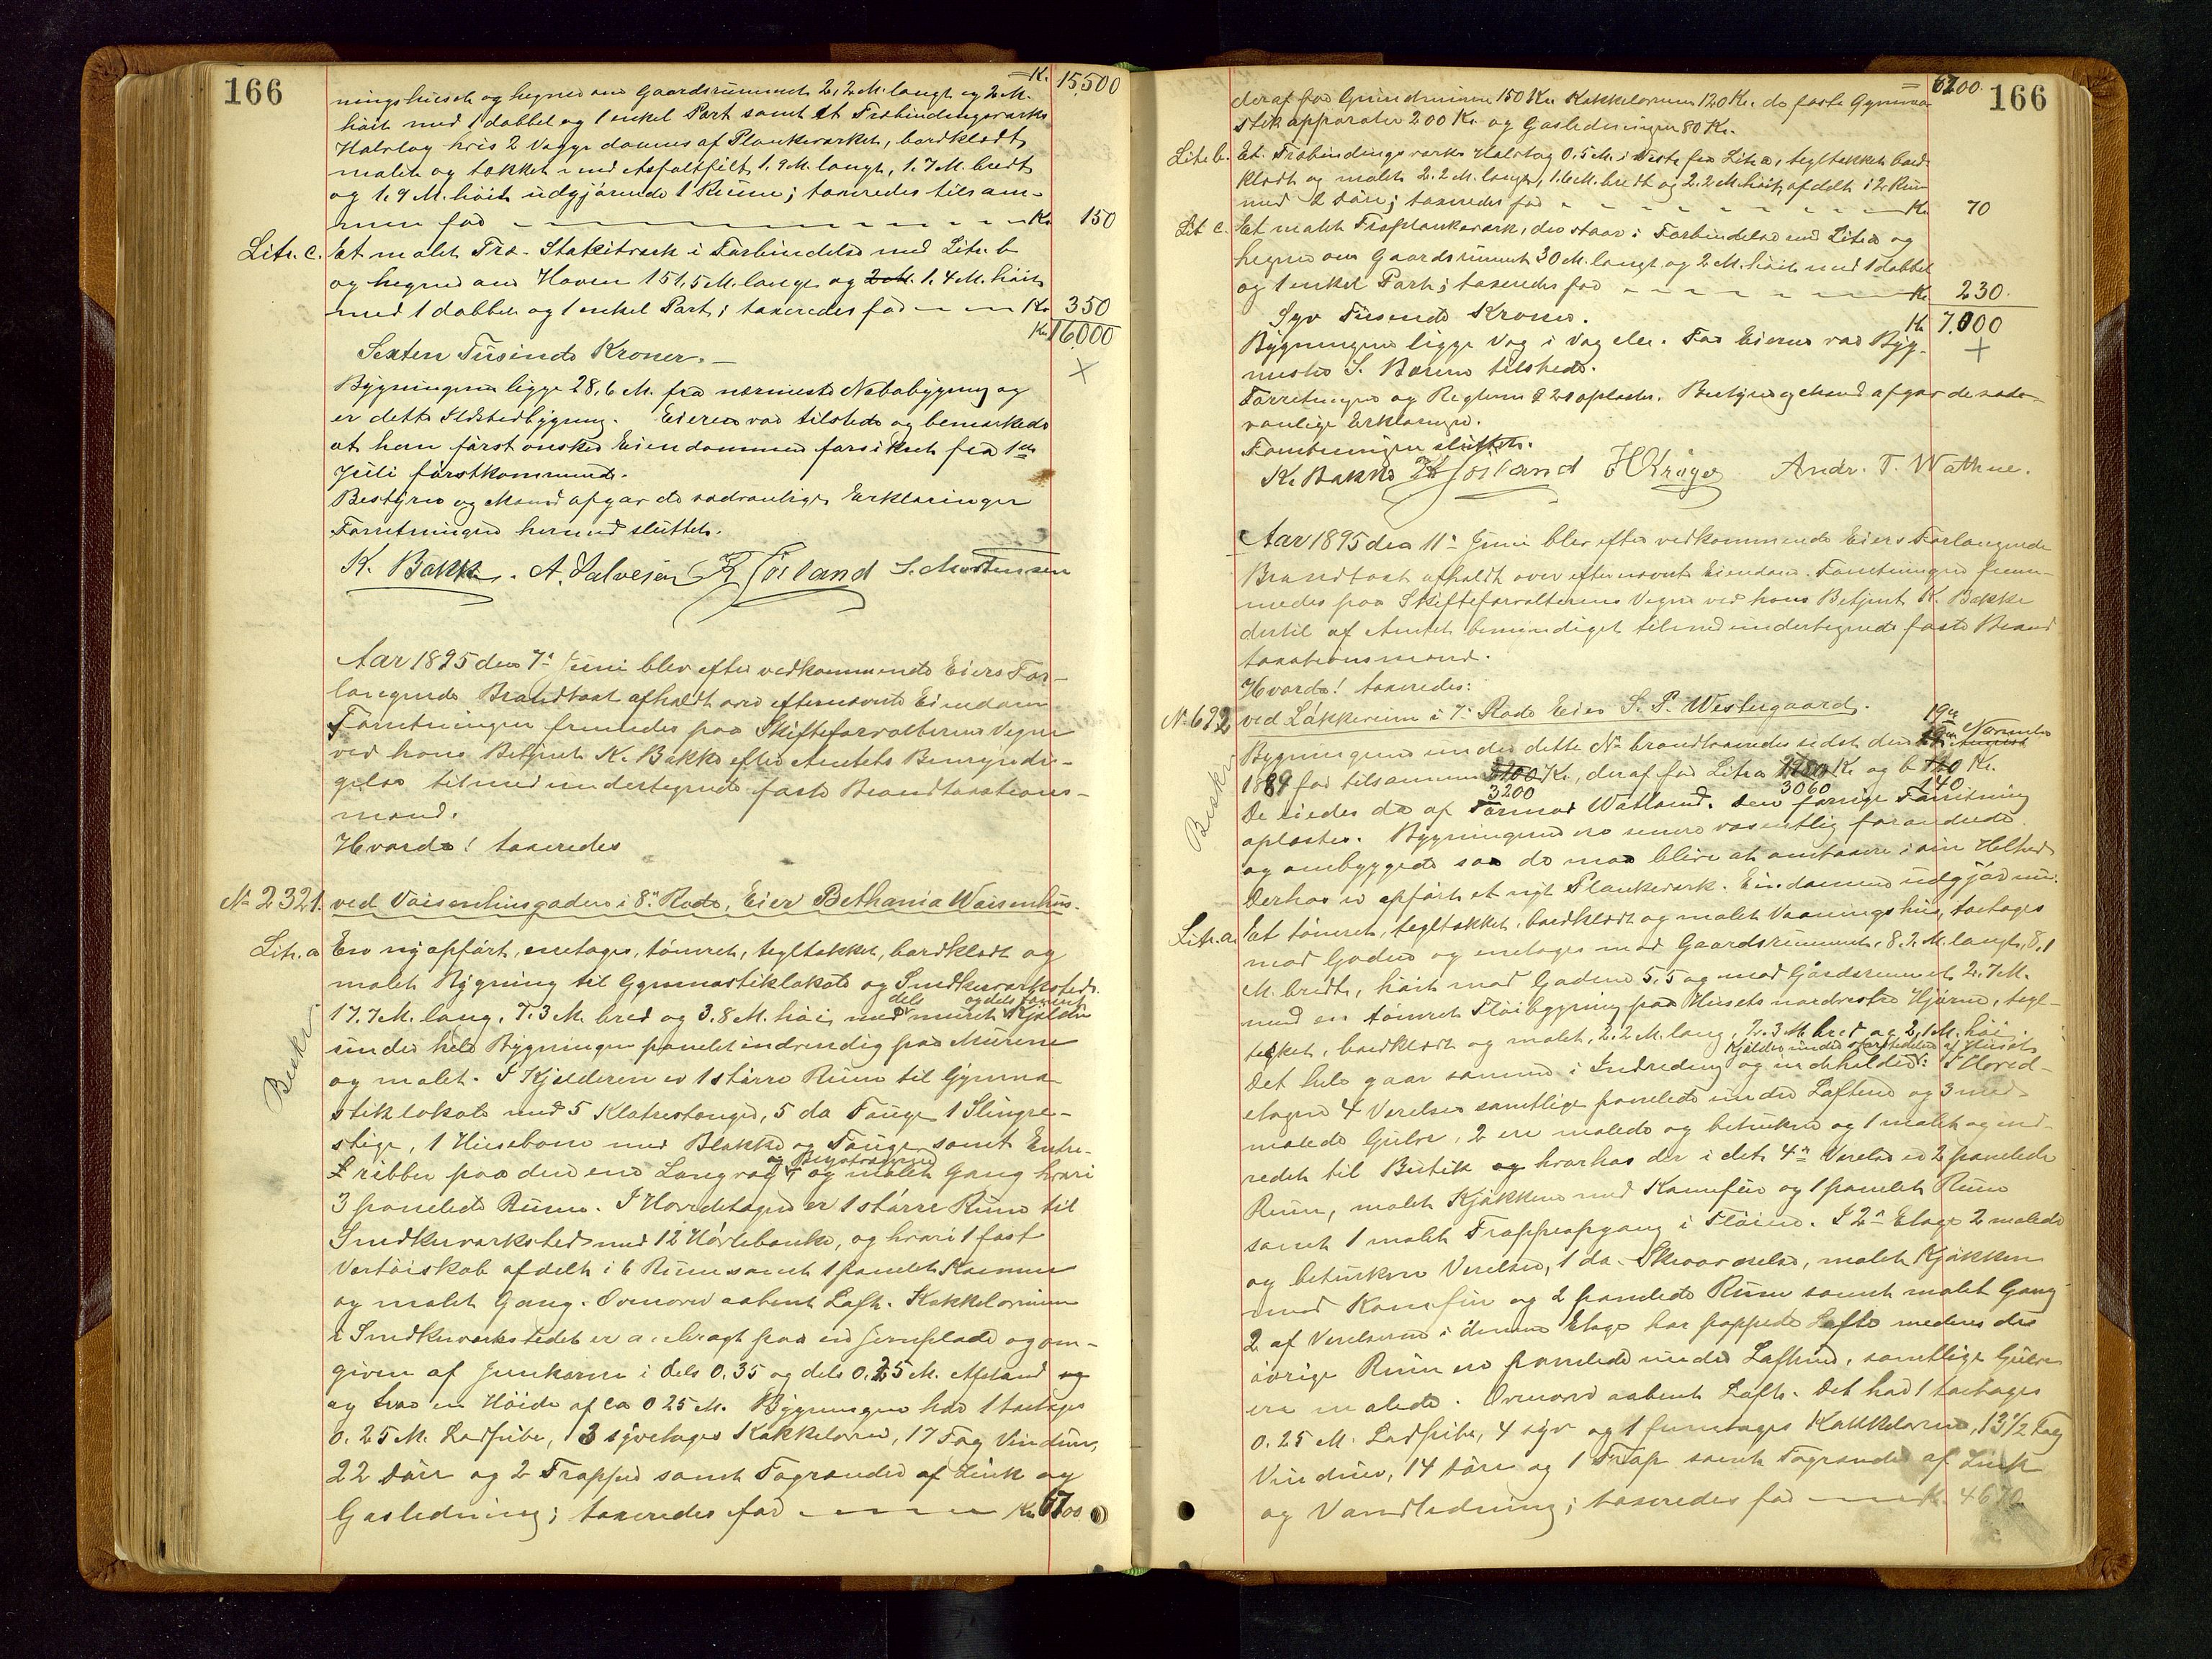 166
= K. 15,500
ningshuset og hegner om Gaardsrummet 2,2 M. langt og 2 M.
höit med 1 dobbel og 1 enkel Port samt et Træbindingsverks
Halvtag hvis 2 Vægge dannes af Plankeverket, bordklædt,
malet og tækket med Asfaltfilt, 1.9 M. langt, 1.7 M. bredt
og 1.9 M. höit udgjörende 1 Rum; taxeredes tilsam-
men for Kr. 150
Litr. c. Et malet Træ-Stakitverk i Forbindelse med Litr. b
og hegner om Haven 151,5 M. langt og 2 M. 1.4 M. höit
med 1 dobbel og 1 enkel Port; taxeredes for Kr. 350
Kr. 16000
Sexten Tusinde Kroner.
Bygningerne ligge 28,6 M. fra nærmeste Nabobygning og
er dette Ildstedbygning. Eieren var tilstede og bemærkede
at han först önsker Eiendommen forsikret fra 1ste
Juli förstkommende.
Bestyrer og Mænd afgav de sædvanlige Erklæringer
Forretningen hermed sluttet.
K. Bakke. A. Salvesen Hörland S. Mortensen
Aar 1895 den 7de Juni blev efter vedkommende Eiers For-
langende Brandtaxt afholdt over efternævnte Eiendom
Forretningen fremmedes paa Skifteforvalterens Vegne
ved hans Betjent K. Bakke efter Amtets Bemyndi-
gelse tilmed undertegnede faste Brandtaxations-
mænd.
Hvorda! taxeredes
No 2321. ved Vaisenhusgaden i 8de Rode, Eier Bethania Waisenhus.
Litr. a En ny opfört, enetages, tömret, tegltækket, bordklædt og
malet Bygning til Gymnastiklokale og Snedkerverksted.
dels og dels tömret
17.7 M. lang, 7.3 M. bred og 3.8 M. höi, med muret Kjelder
under hele Bygningen panelet indvendig paa Murene
og malet. I Kjelderen er 1 större Rum til Gymna-
Beskr.
stiklokale med 5 Klatrestænger, 5 do Touge 1 Slingre-
stige, 1 Husebom med Blokke og Touge samt Entre-
og Brystværn
ribber paa den ene Langvæg og malet Gang hvori
3 panelede Rum. I Hovedetagen er 1 större Rum til
Snedkerverksted med 12 Hövlebænke, og hvori 1 fast
Værktöiskab afdelt i 6 Rum samt 1 panelet Kammer
og malet Gang. Ovenover aabent Loft. Kakkelovnen
i Snedkerverkstedet er anbragt paa en Jernplade og om-
given af Jernkarm i dels 0.35 og dels 0.25 M. Afstand og
og hvor en Höide af ca 0.25 M. Bygningen har 1 toetages
0.25 M. Rörpibe, 3 syvetages Kakkelovne, 17 Fag Vinduer,
22 Döre og 2 Trapper samt Tagrender af Zink og
Gasledning; taxeredes for Kr. 6700
166
= 6700.
deraf for Grundmuren 150 Kr. Kakkelovnene 120 Kr. de faste Gymna-
stikapparater 200 Kr. og Gasledningen 80 Kr.
Litr. b. Et Træbindingsverks Halvtag 0,5 M. i Veste fra Litr. a, tegltækket bord-
klædt og malet 2.2 M. langt, 1.6 M. bredt og 2.2 M. höit, afdelt i 2 Rum
med 2 Döre; taxeredes for Kr. 70
Litr c. Et malet Træplankeverk, der staar i Forbindelse med Litr a og
hegner om Gaardsrummet 30 M. langt og 2 M. höit med 1 dobbel
og 1 enkel Port; taxeredes for Kr. 230.
Syv Tusende Kroner. Kr. 7.000
Bygningerne ligge Væg i Væg eller. For Eieren var Byg-
mester S. Bærem tilstede.
Forretningen og Reglerne § 21 oplæstes. Bestyrer og Mænd afgav de sæd-
vanlige Erklæringer.
Forretningen sluttet.
K. Bakke Hörland H Kröger Andr. T. Wathne.
Aar 1895 den 11te Juni blev efter vedkommende Eiers Forlangende
Brandtaxt afholdt over efternævnte Eiendom. Forretningen frem-
medes paa Skifteforvalterens Vegne ved hans Betjent K. Bakke
dertil af Amtet bemyndiget tilmed undertegnede faste Brand
taxationsmænd.
Hvorda! taxeredes:
No. 692 ved Løkkeveien i 7de Rode Eier S. P. Westergaard.
19de November
Bygningerne under dette No brandtaxeredes sidst den August
1889 for tilsammen Kr., deraf for Litr a Kr. og b Kr.
3200 3060 140
Beskr.
De eiedes da af Tormod Watland. Den forrige Forretning
oplæstes. Bygningerne ere senere væsentlig forandrede
og ombyggede saa de maa blive at omtaxere i sin Helhed
Derhos er opfört et nyt Plankeverk. Eiendommen udgjör nu:
Litr. a. Et tömret, tegltækket, bordklædt og malet Vaaningshus, toetages
mod Gaden og enetages mod Gaardsrummet, 8.2 M. langt, 8.1
M. bredt, höit mod Gaden 5,5 og mod Gårdsrummet 2.7 M.
med en tömret Flöibygning paa Husets nordvestre Hjörne, tegl-
tækket, bordklædt og malet, 2.2 M. lang, 2.3 M. bred og 2,1 M. höi.
Kjelder under störstedelen af Huset
Det hele gaar sammen i Indreding og indeholder: I Hoved-
etagen 4 Værelser samtlige panelede under Loftene og 3 med
malede Gulve, 2 ere malede og betrukne og 1 malet og ind-
redet til Butik og hvorhos der i det 4de Værelse er 2 panelede
Rum, malet Kjökken med Komfur og 1 panelet Rum
samt 1 malet Trappeopgang i Flöien. I 2den Etage 2 malede
og betrukne Værelser, 1 do. Skraaværelse, malet Kjökken
med Komfur og 2 panelede Rum samt malet Gang
2 af Værelserne i denne Etage har pappede Lofte medens de
övrige Rum ere panelede under Loftene, samtlige Gulve
ere malede. Ovenover aabent Loft. Det har 1 toetages
0.25 M. Rörpibe, 4 syv og 1 femetages Kakkelovne, 13 1/2 Fag
Vinduer, 14 Döre og 1 Trap samt Tagrender af Zink
og Vandledning; taxeredes for K. 4670